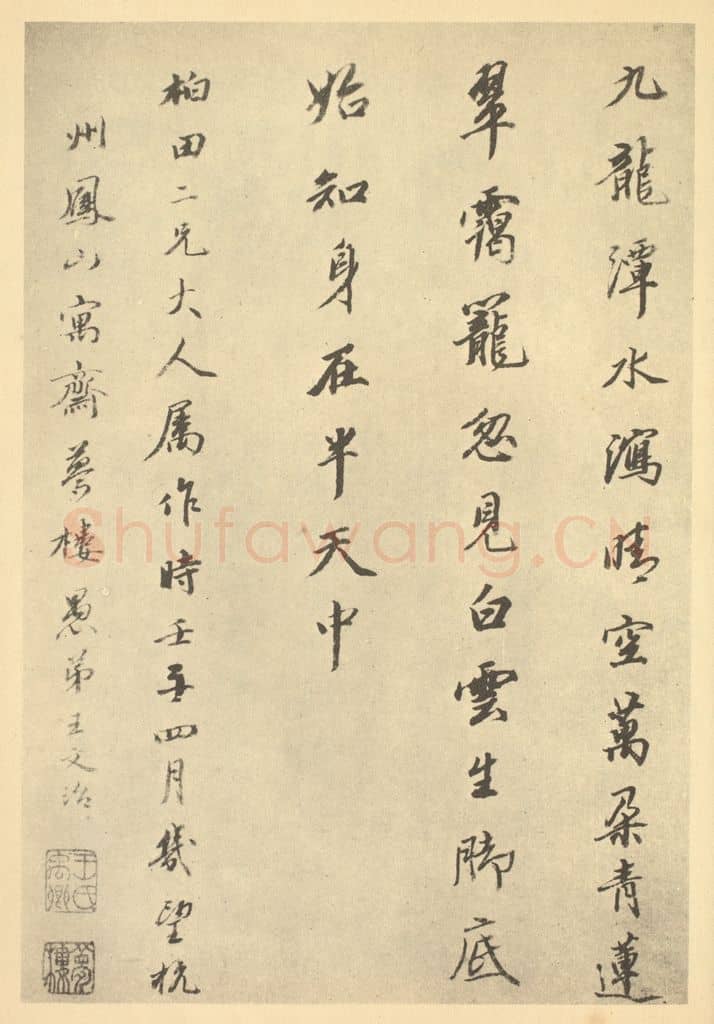 九龍潭水瀉晴空萬朶青蓮
翠靄籠忽見白雲生腳底
始知身在半天中
柏田二兄大人属作時壬子四月幾望杭
州鳳山寓齋夢樓愚弟王文治
王氏禹卿
夢樓
Shufawang.CN